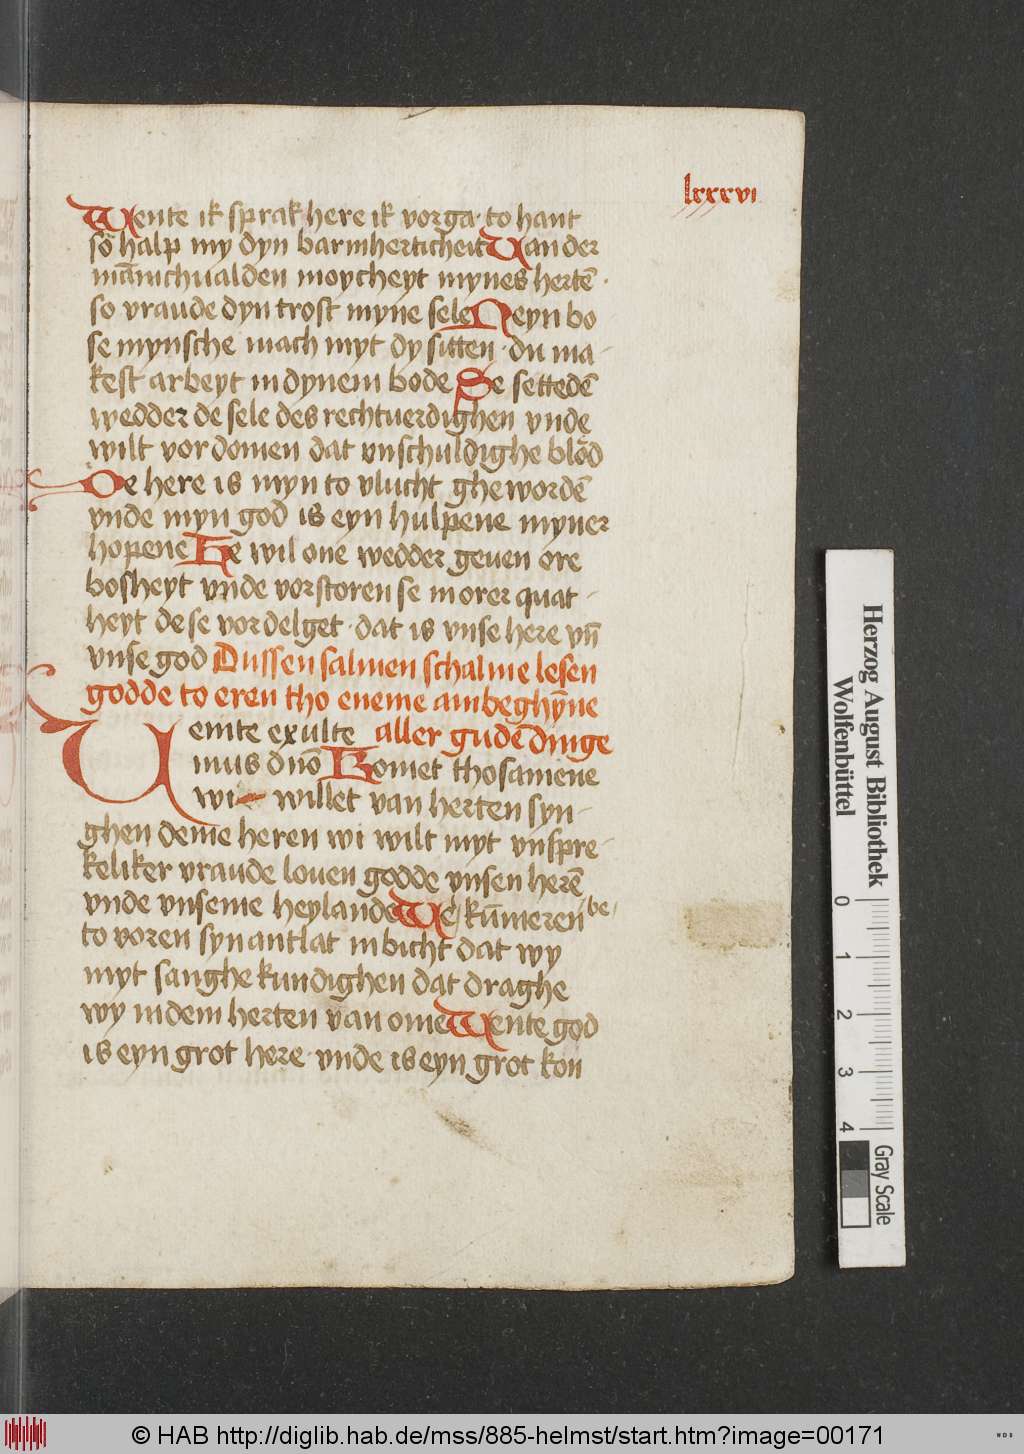 lxxxvi
Wente ik sprak here ik vorga· to hant
so halp my dyn barmherticheit Van der
mānichualden moycheyt mynes hertē·
so vraude dyn trost myne sele Neyn bo
se mynsche mach myt dy sitten· du ma-
kest arbeyt in dynem bode Se settedē
wedder de sele des rechtuerdighen vnde
wilt vordomen dat vnschuldighe blod
De here is myn to vlucht ghewordē
vnde myn god is eyn hulpene myner
hopene He wil one wedder geuen ore
bosheyt vnde vorstoren se in orer quat-
heyt de se vordelget· dat is vnse here vn̄
vnse god Dussen salmen schalme lesen
godde to eren tho eneme ambeghȳne
aller gudē dinge
Uenite exulte
mus dn̄o Komet thosamene
wi willet van herten syn-
ghen deme heren wi wilt myt vnspre-
keliker vraude louen godde vnsen herē
vnde vnseme heylande We kūmeren be-
to voren syn antlat in bicht dat wy
myt sanghe kundighen dat draghe
wy in dem herten van ome Wente god
is eyn grot here· vnde is eyn grot kon
Herzog August Bibliothek
Wolfenbüttel
0 1 2 3 4
Gray Scale
© HAB http://diglib.hab.de/mss/885-helmst/start.htm?image=00171